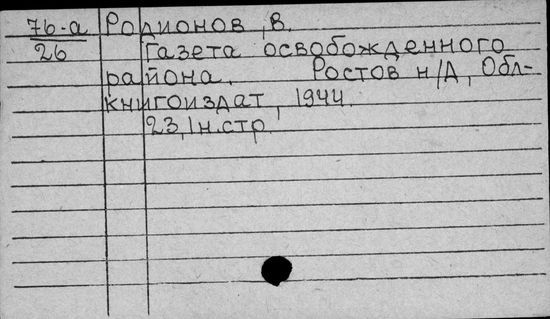 76-а Родионов, В.
26 Газета освобожденного
района. Ростов н/Д, Обл-
книгоиздат, 1944.
23, 1н.стр.